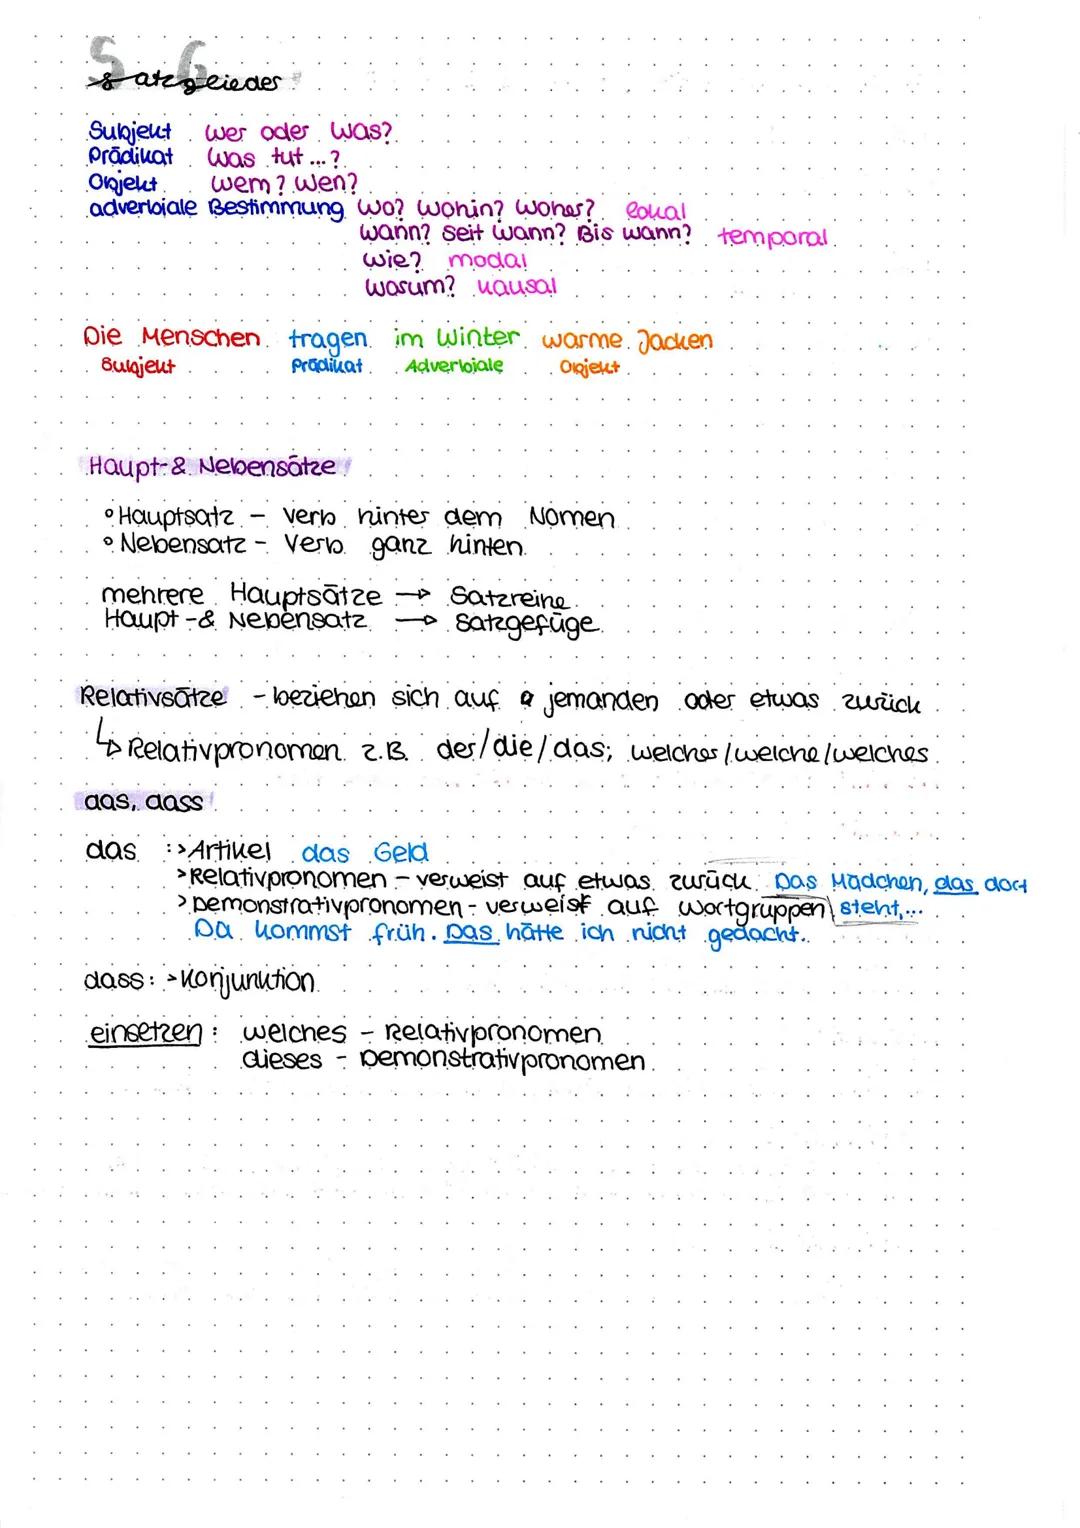 Satzglieder
Subjekt wer oder was?
Prädikat was tut ...?
Objekt wem? wen?
adverbiale Bestimmung wo? wohin? woher? lokal
wann? seit wann? Bis wann? temporal
wie? modal
warum? kausal
Die Menschen tragen im Winter warme Jacken
Subjekt Prädikat Adverbiale Objekt
Haupt- & Nebensätze
° Hauptsatz - Verb hinter dem Nomen
° Nebensatz - Verb ganz hinten
mehrere Hauptsätze → Satzreihe
Haupt- & Nebensatz → Satzgefüge
Relativsätze - beziehen sich auf jemanden oder etwas zurück
↳ Relativpronomen z.B. der/die/das; welcher/welche/welches
das, dass
das :> Artikel das Geld
> Relativpronomen - verweist auf etwas zurück Das Mädchen, das dort
> Demonstrativpronomen - verweist auf Wortgruppen steht,...
Da kommst früh. Das hätte ich nicht gedacht.
dass: > Konjunktion
einsetzen: welches - Relativpronomen
dieses - Demonstrativpronomen